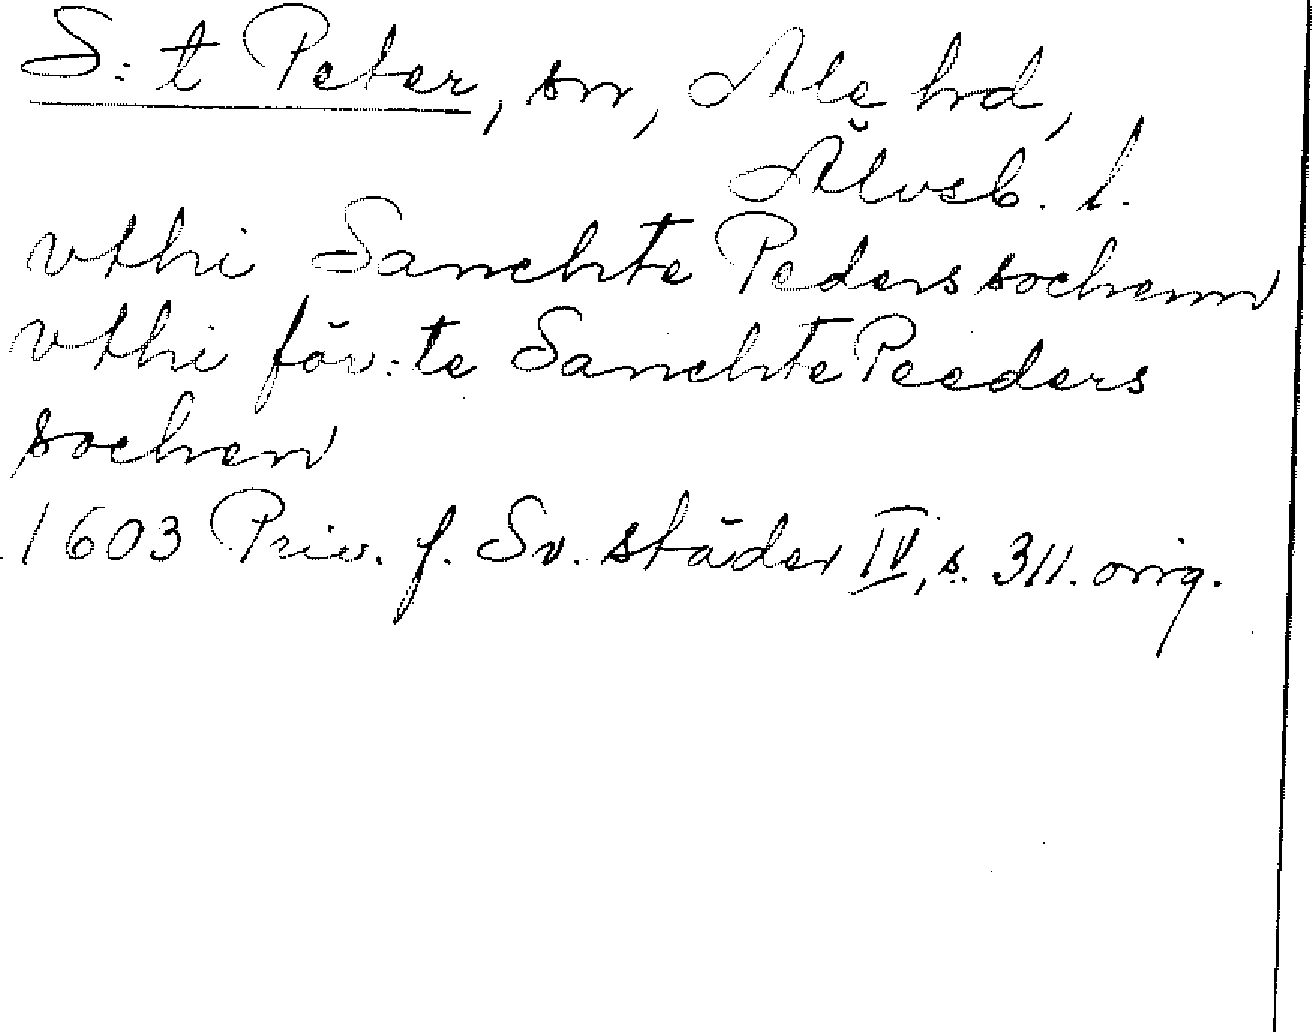 S:t Peter, sn, Ale hd,
Älvsb. l.
vthi Sanchte Peders sochenn
vthiför:te Sanchte Peeders
sochen
1603 Priv. f. Sv. städer IV, s. 311. orig.